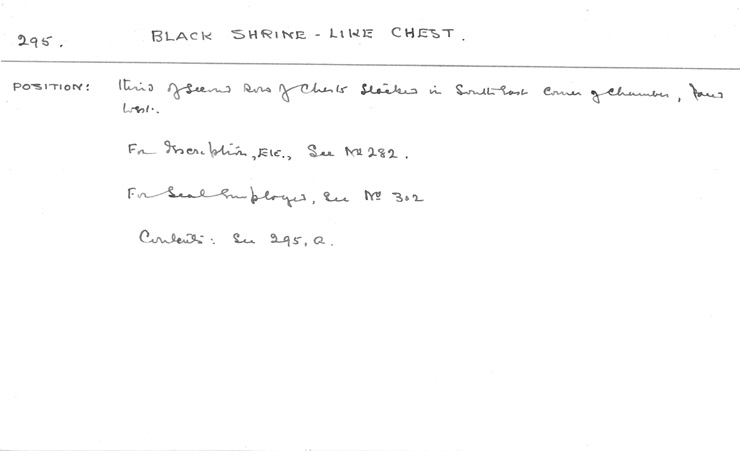 295. BLACK SHRINE-LIKE CHEST.
POSITION: Third of Second Row of Chests Stacked in South East Corner of Chamber, faced
West.
For Description, Etc., See Nº 282.
For Seal Employed, See Nº 302
Contents: See 295, a.